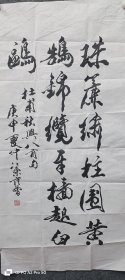 珠簾繡柱圍黃
鵠錦纜牙檣起白
鷗
杜甫秋興八首
庚申夏